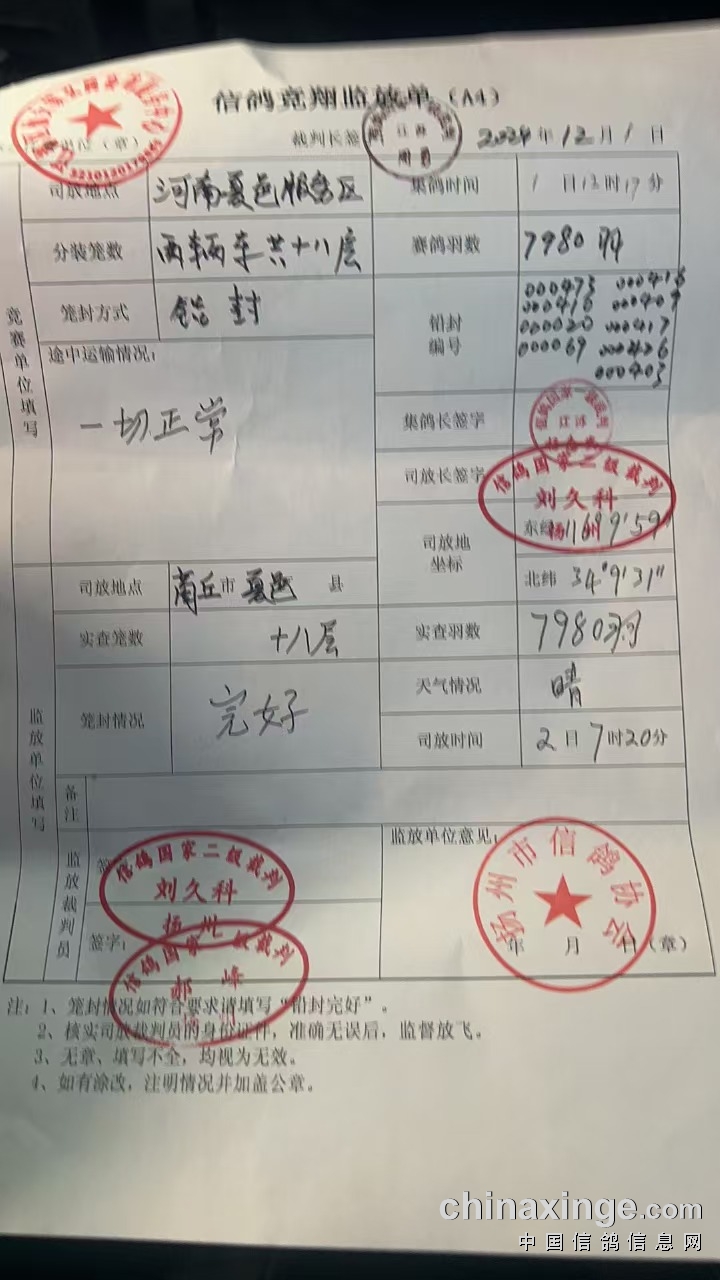 信鸽竞翔监放单（A4）
（章） 裁判长签 2024年12月1日
竞赛单位填写
司放地点 河南夏邑服务区 集鸽时间 1日13时17分
分装笼数 两辆车共十八层 赛鸽羽数 7980羽
笼封方式 铅封 铅封编号
000473 000416
000410 000409
000020 000417
000069 000426
000403
途中运输情况：
一切正常
集鸽长签字
信鸽国家一级裁判
江苏
司放长签字
信鸽国家二级裁判
刘久科
扬州
司放地坐标 东经
北纬 34°9'31"
监放单位填写
司放地点 商丘市夏邑县
实查笼数 十八层 实查羽数 7980羽
笼封情况 完好 天气情况 晴
司放时间 2日7时20分
备注
监放裁判员
信鸽国家二级裁判
刘久科
扬州
签字：
信鸽国家二级裁判
峰
监放单位意见：
扬州市信鸽协会
年 月 日（章）
注：1、笼封情况如符合要求请填写“铅封完好”。
2、核实司放裁判员的身份证件，准确无误后，监督放飞。
3、无章、填写不全，均视为无效。
4、如有涂改，注明情况并加盖公章。
chinaxinge.com
中国信鸽信息网